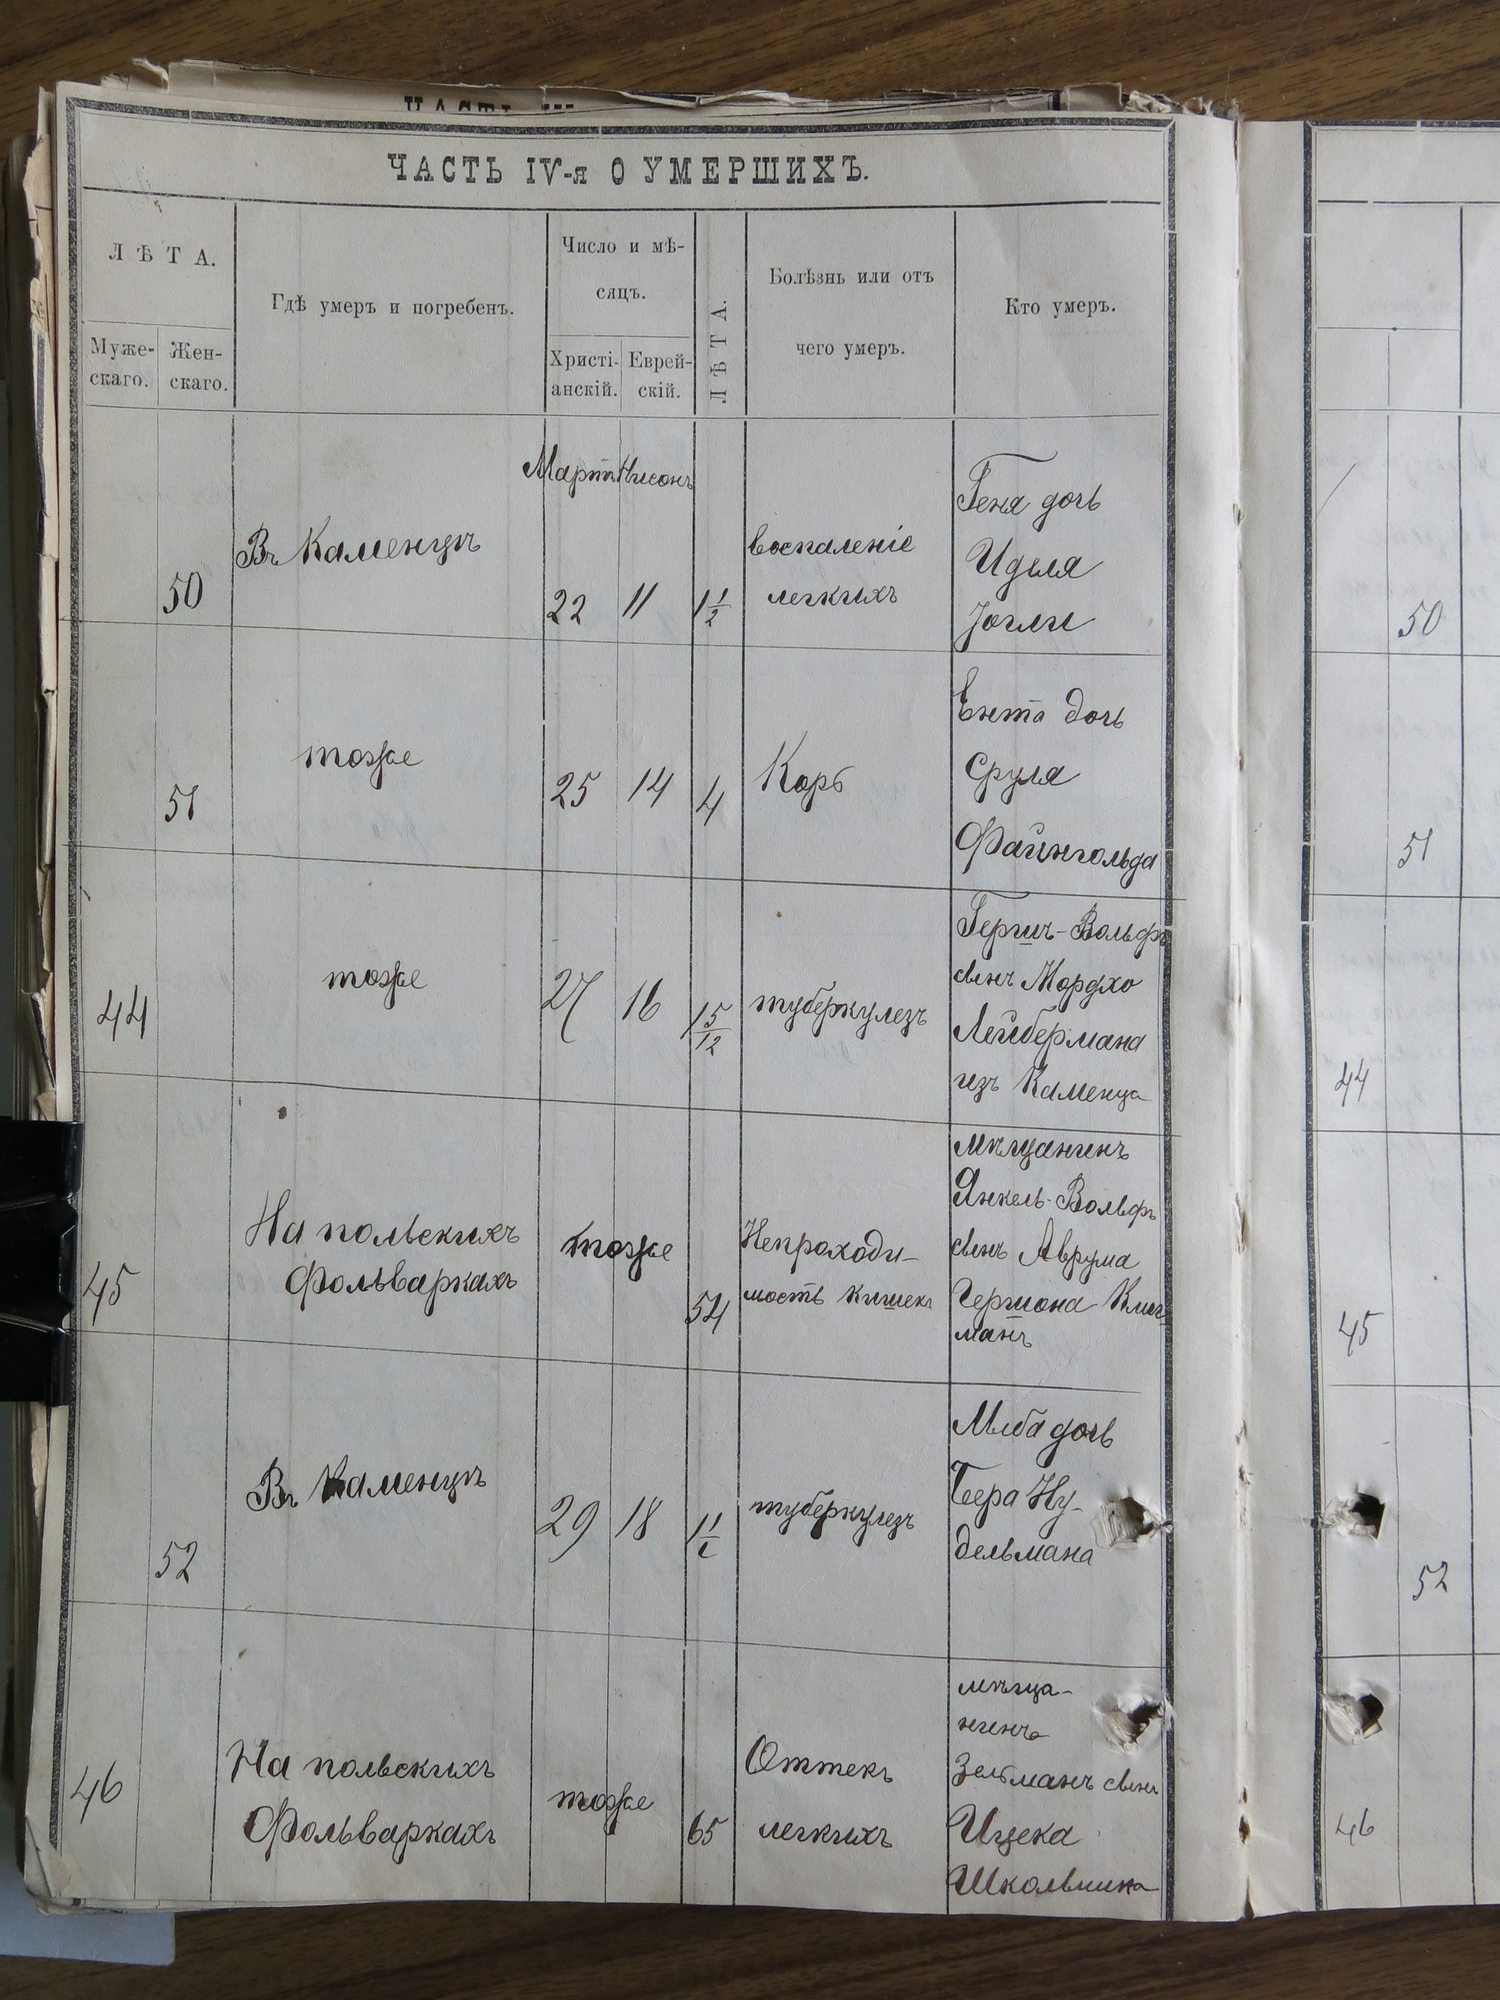 ЧАСТЬ IV-я О УМЕРШИХЪ.
ЛѢТА.
Муже-
скаго.
Жен-
скаго.
Гдѣ умеръ и погребенъ.
Число и мѣ-
сяцъ.
Христі-
анскій.
Еврей-
скій.
ЛѢТА.
Болѣзнь или отъ
чего умеръ.
Кто умеръ.
50
Въ Каменцѣ
Мартъ Нисонъ
22 11 1 1/2
воспаленіе
легкихъ
Геня дочь
Иделя
50
51
тоже
25 14 4
Корь
Ента дочь
Сруля
Файнгольда
51
44
тоже
27 16 1 5/12
туберкулезъ
Гершъ-Вольфъ
сынъ Мордхо
Лейбермана
изъ Каменца
44
45
На польскихъ
фольваркахъ
тоже
54
Непроходи-
мость кишекъ
мѣщанинъ
Янкель-Вольфъ
сынъ Аврума
Гершона Клиг-
манъ
45
52
Въ Каменцѣ
29 18
туберкулезъ
дочь
Бера Ну-
дельмана
52
46
На польскихъ
Фольваркахъ
тоже
65
Оттекъ
легкихъ
мѣща-
нинъ
Зельманъ сынъ
Ицека
Школьника
46